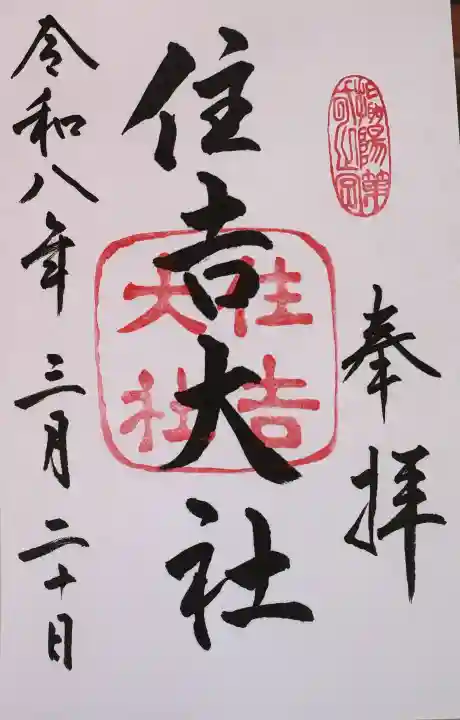 奉拝
住吉大社
住吉
大社
令和八年三月二十日